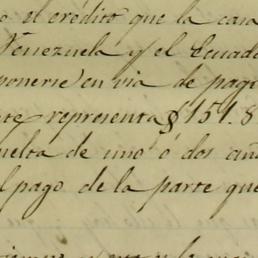 o el crédito que la casa
Venezuela y el Ecuado
ponerse en via de pago
te representa $ 151.8
uelta de uno ó dos añ
l pago de la parte que